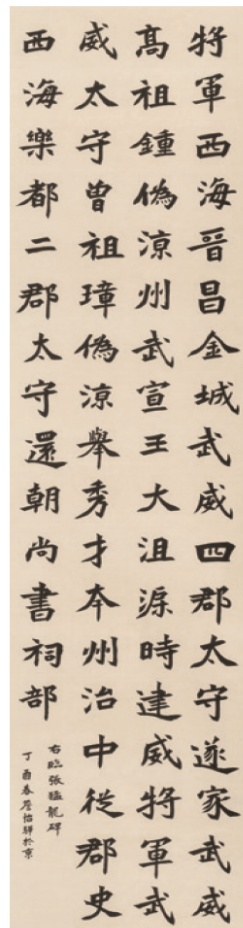 将軍西海晉昌金城武威四郡太守遂家武威
高祖鍾偽涼州武宣王大沮渠時建威将軍武
威太守曾祖璋偽涼舉秀才本州治中從郡史
西海樂都二郡太守還朝尚書祠部
右臨張猛龍碑
丁酉春詹怡驊於京